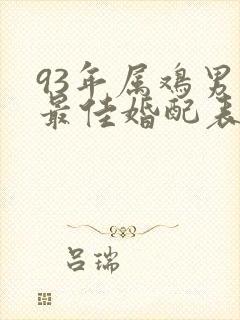 93年属鸡男
最佳婚配表
吕瑞